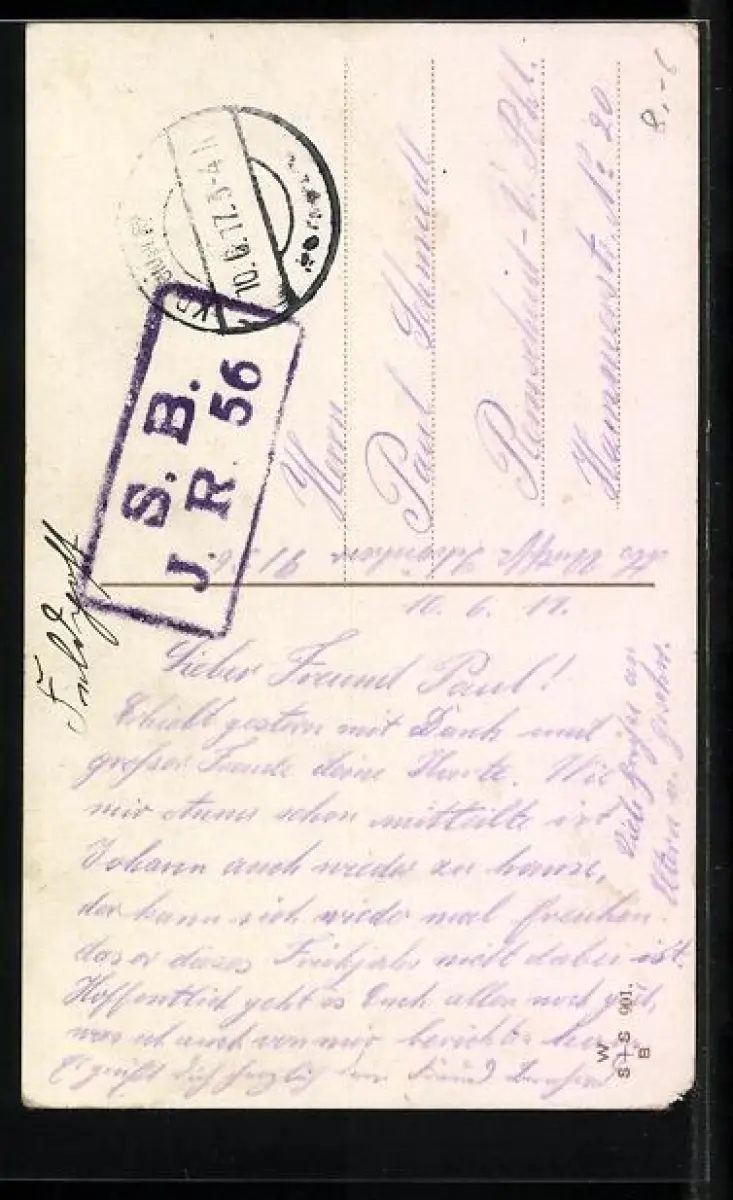 Feldpost
10.6.17.3-4
S. B.
J. R. 56
Herrn
Paul Schmidt
Remscheid-V. Pkl.
Hammerstr. No 20
8,-
10. 6. 17.
Lieber Freund Paul!
Erhielt gestern mit Dank und
grosser Freude deine Karte. Wie
mir schon mitteilte ist
Johann auch wieder zu hause,
der kann sich wieder mal freuhen.
das er dieses Frühjahr nicht dabei ist.
Hoffentlich geht es Euch allen noch gut,
was ich auch von mir berichte
Es grüßt dich herzlich Freund
Viele Grüße an
Eltern u. Geschw.
W
S+S 901.
B